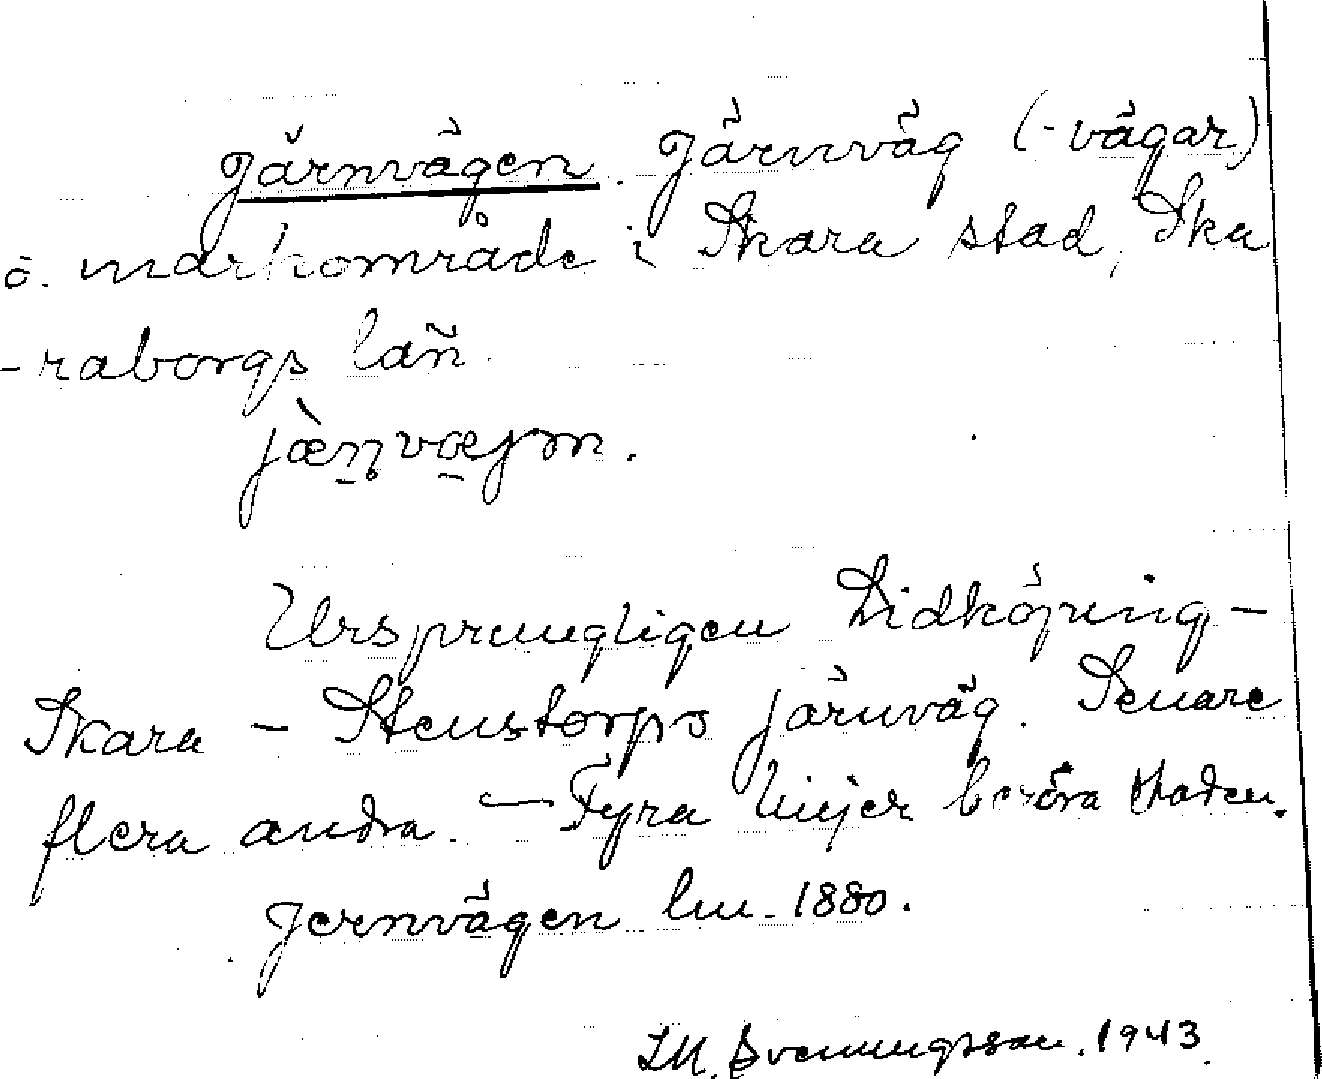 Järnvägen. Järnväg (-vägar)
o. markområde i Skara stad, Ska
-raborgs län.
jæ̀ṉvæjən.
Ursprungligen Lidköping-
Skara - Stenstorps järnväg. Senare
flera andra. - Fyra linjer beröra staden.
Jernvägen lm. 1880.
Svenningsson. 1943